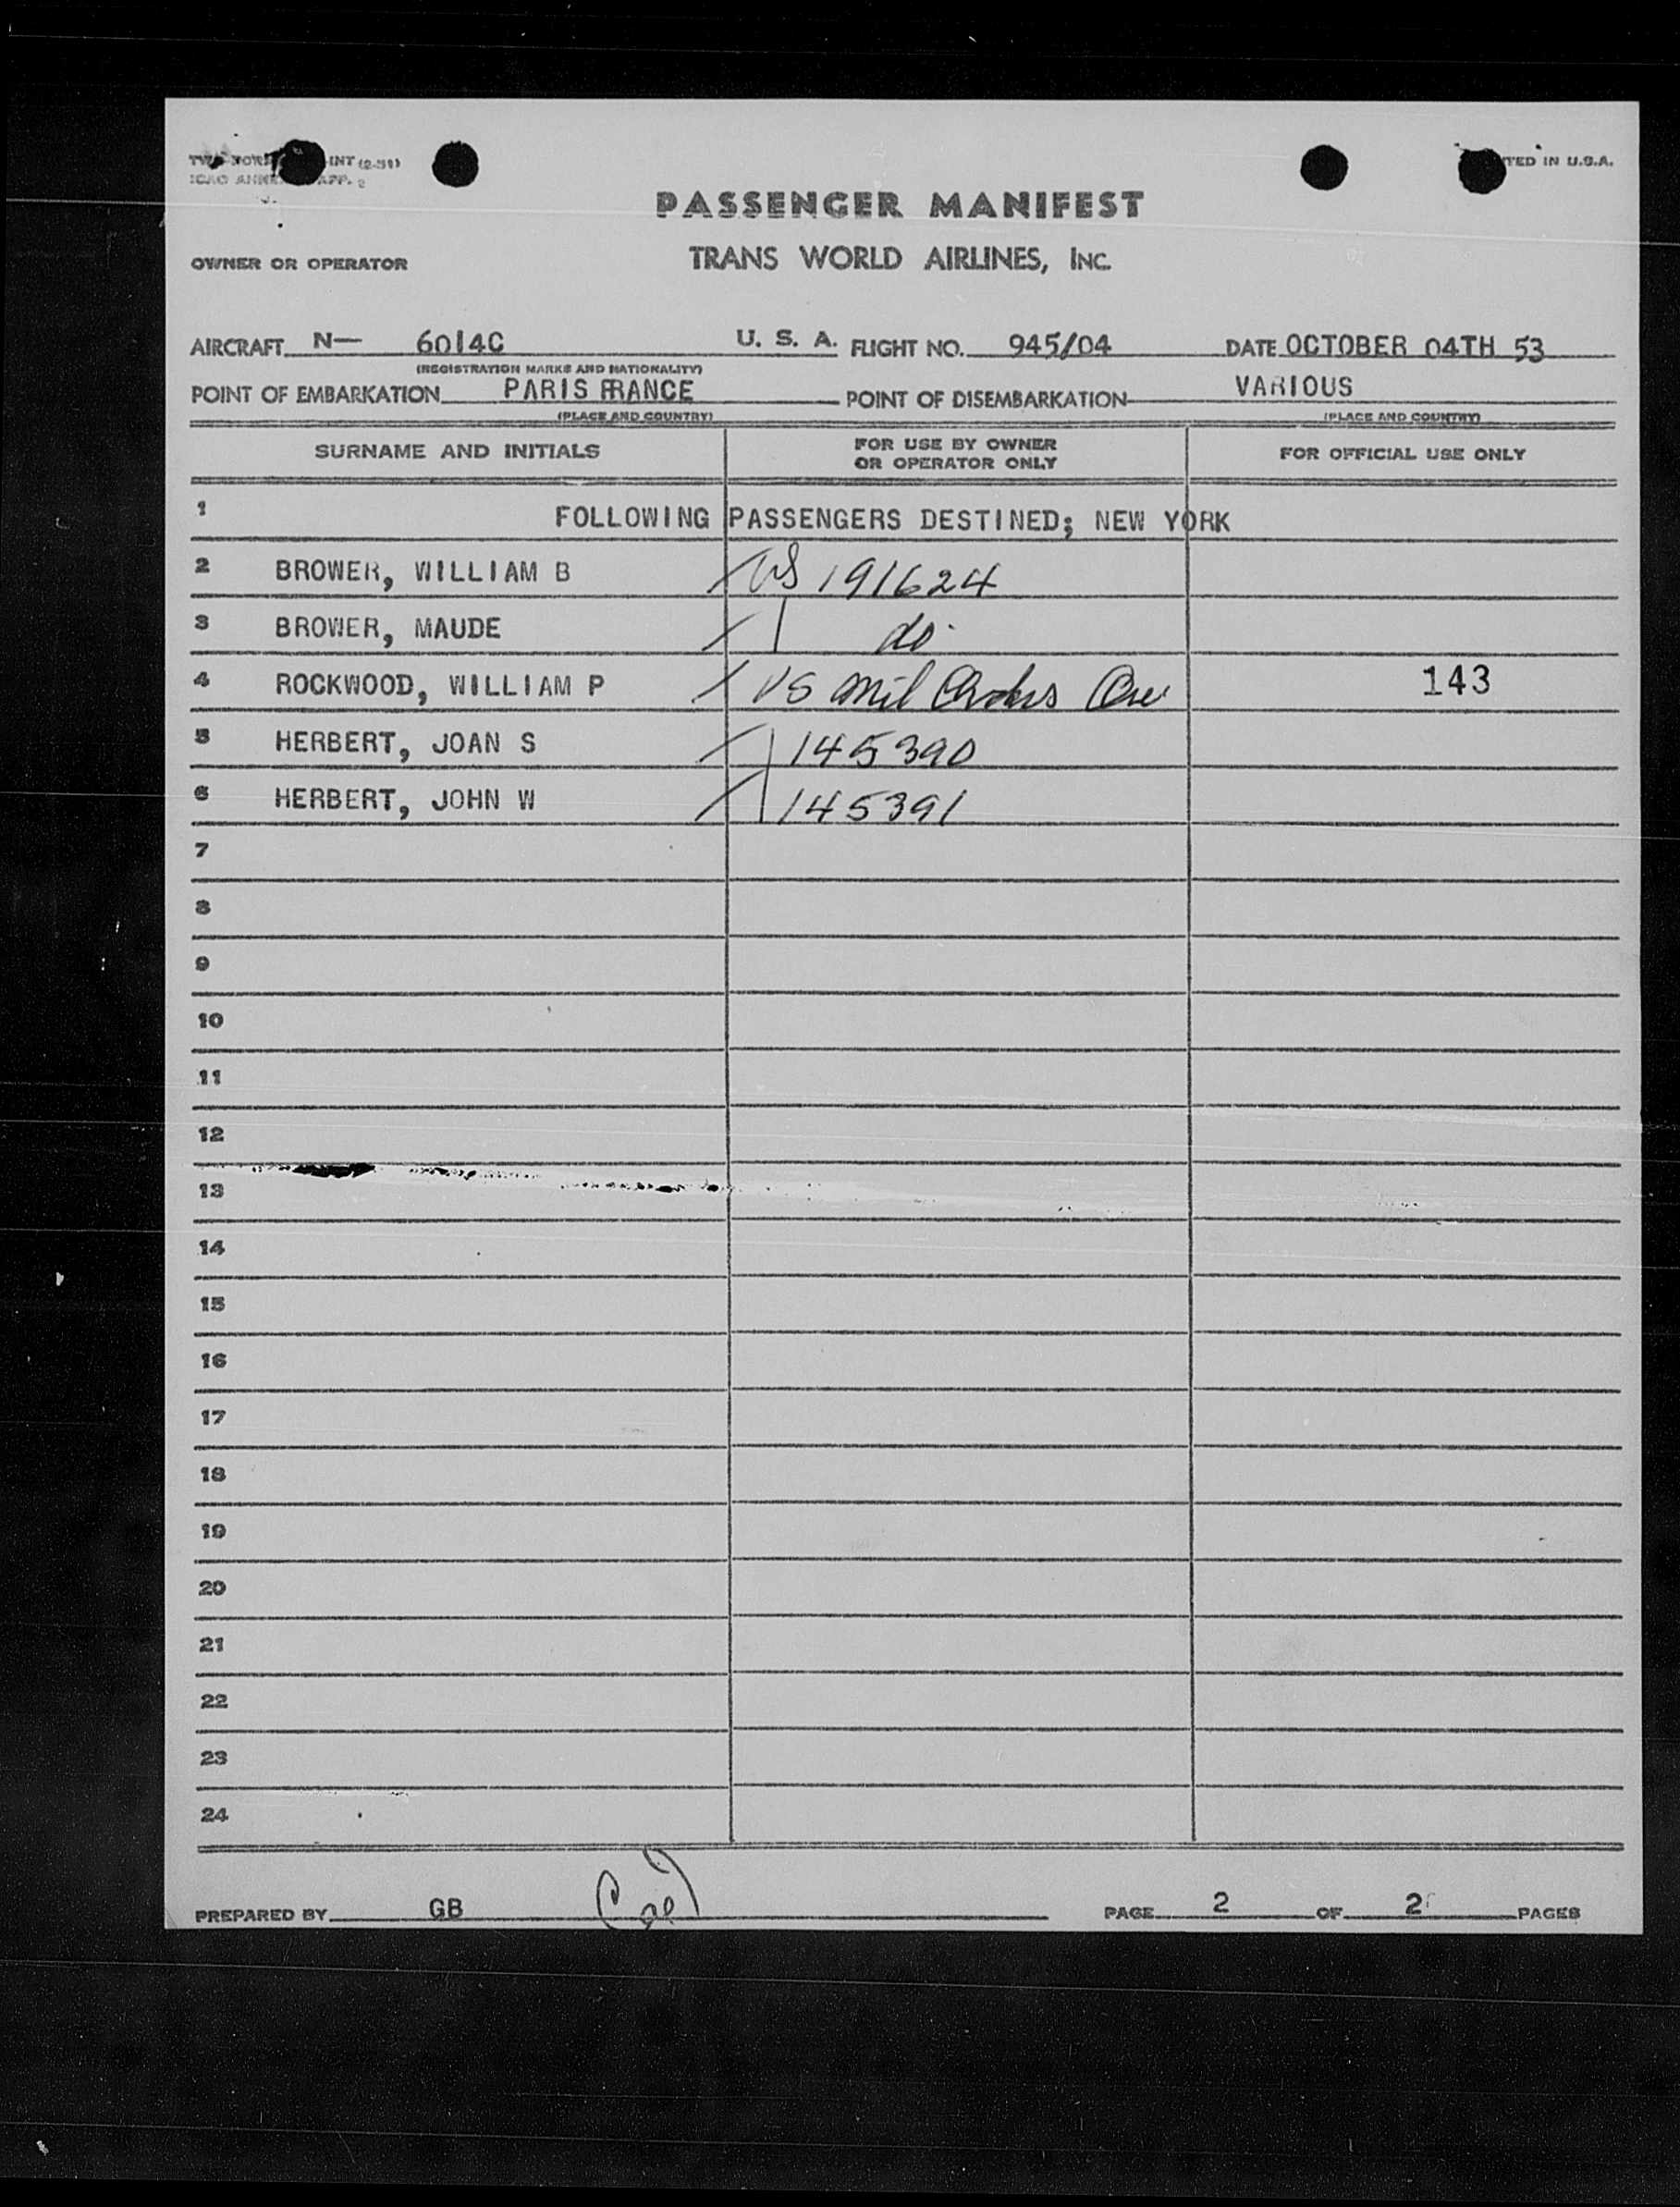 INT (2-51)
PRINTED IN U.S.A.
ICAO ANNEX APP. 2
PASSENGER MANIFEST
OWNER OR OPERATOR TRANS WORLD AIRLINES, INC.
AIRCRAFT N— 6014C U. S. A. FLIGHT NO. 945/04 DATE OCTOBER 04TH 53
(REGISTRATION MARKS AND NATIONALITY)
POINT OF EMBARKATION PARIS FRANCE POINT OF DISEMBARKATION VARIOUS
(PLACE AND COUNTRY) (PLACE AND COUNTRY)
SURNAME AND INITIALS FOR USE BY OWNER OR OPERATOR ONLY FOR OFFICIAL USE ONLY
1 FOLLOWING PASSENGERS DESTINED; NEW YORK
2 BROWER, WILLIAM B US 191624
3 BROWER, MAUDE do
4 ROCKWOOD, WILLIAM P US Mil Orders 143
5 HERBERT, JOAN S 145390
6 HERBERT, JOHN W 145391
7
8
9
10
11
12
13
14
15
16
17
18
19
20
21
22
23
24
PREPARED BY GB PAGE 2 OF 2 PAGES